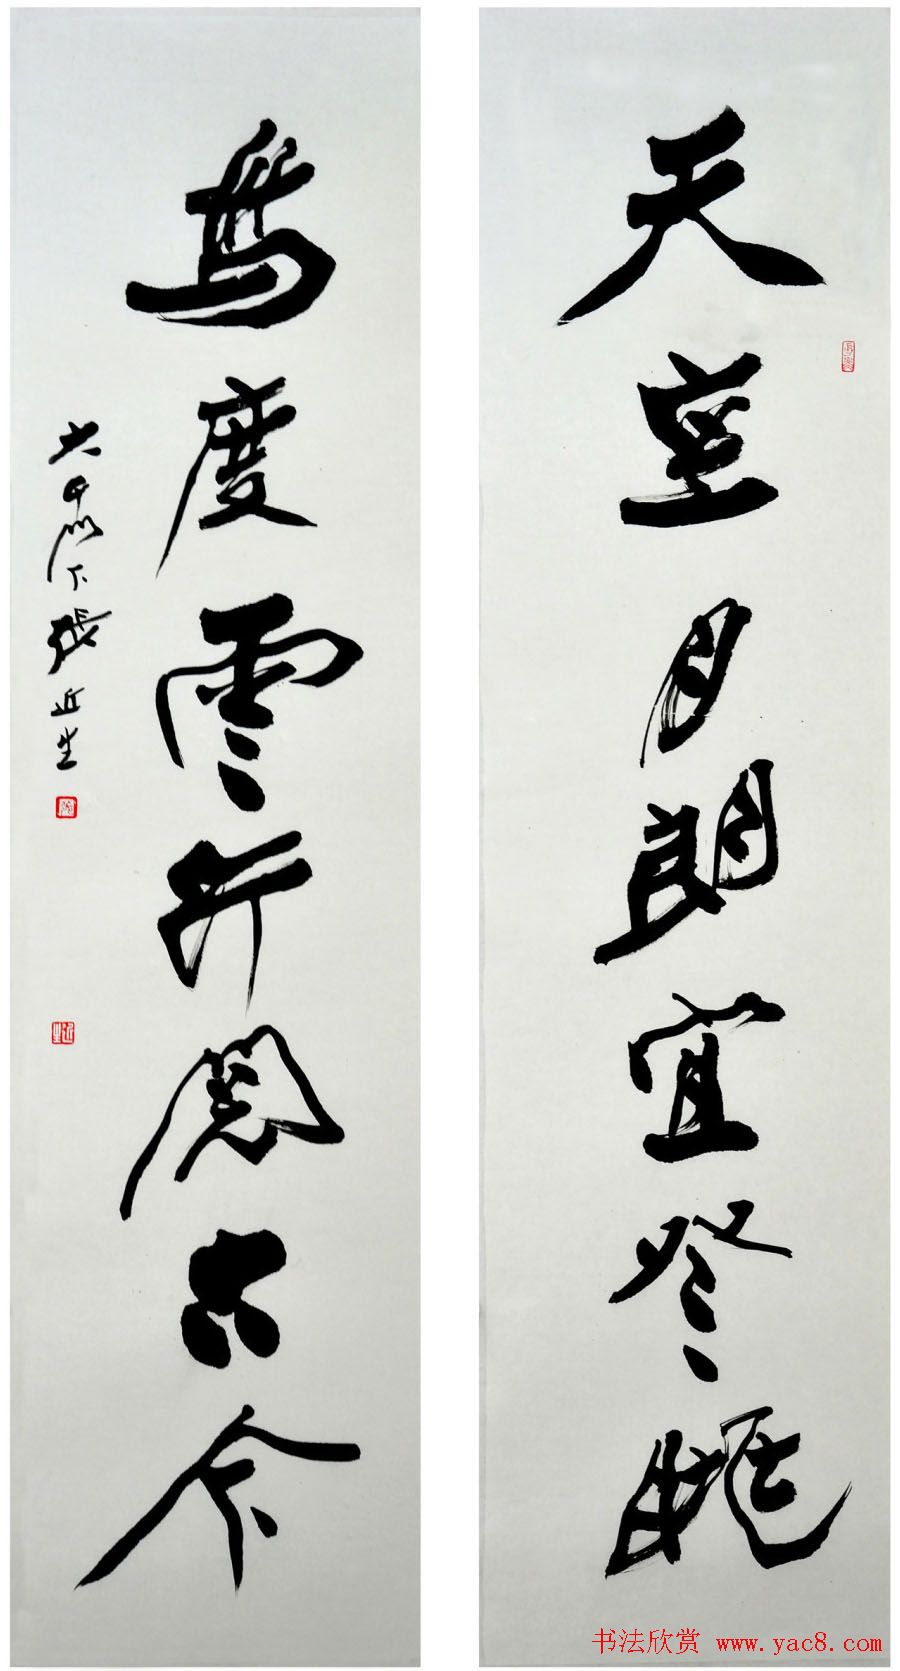 天空月朗宜登眺
鳥度雲行閱古今
大千门下張近生
书法欣赏 www.yac8.com